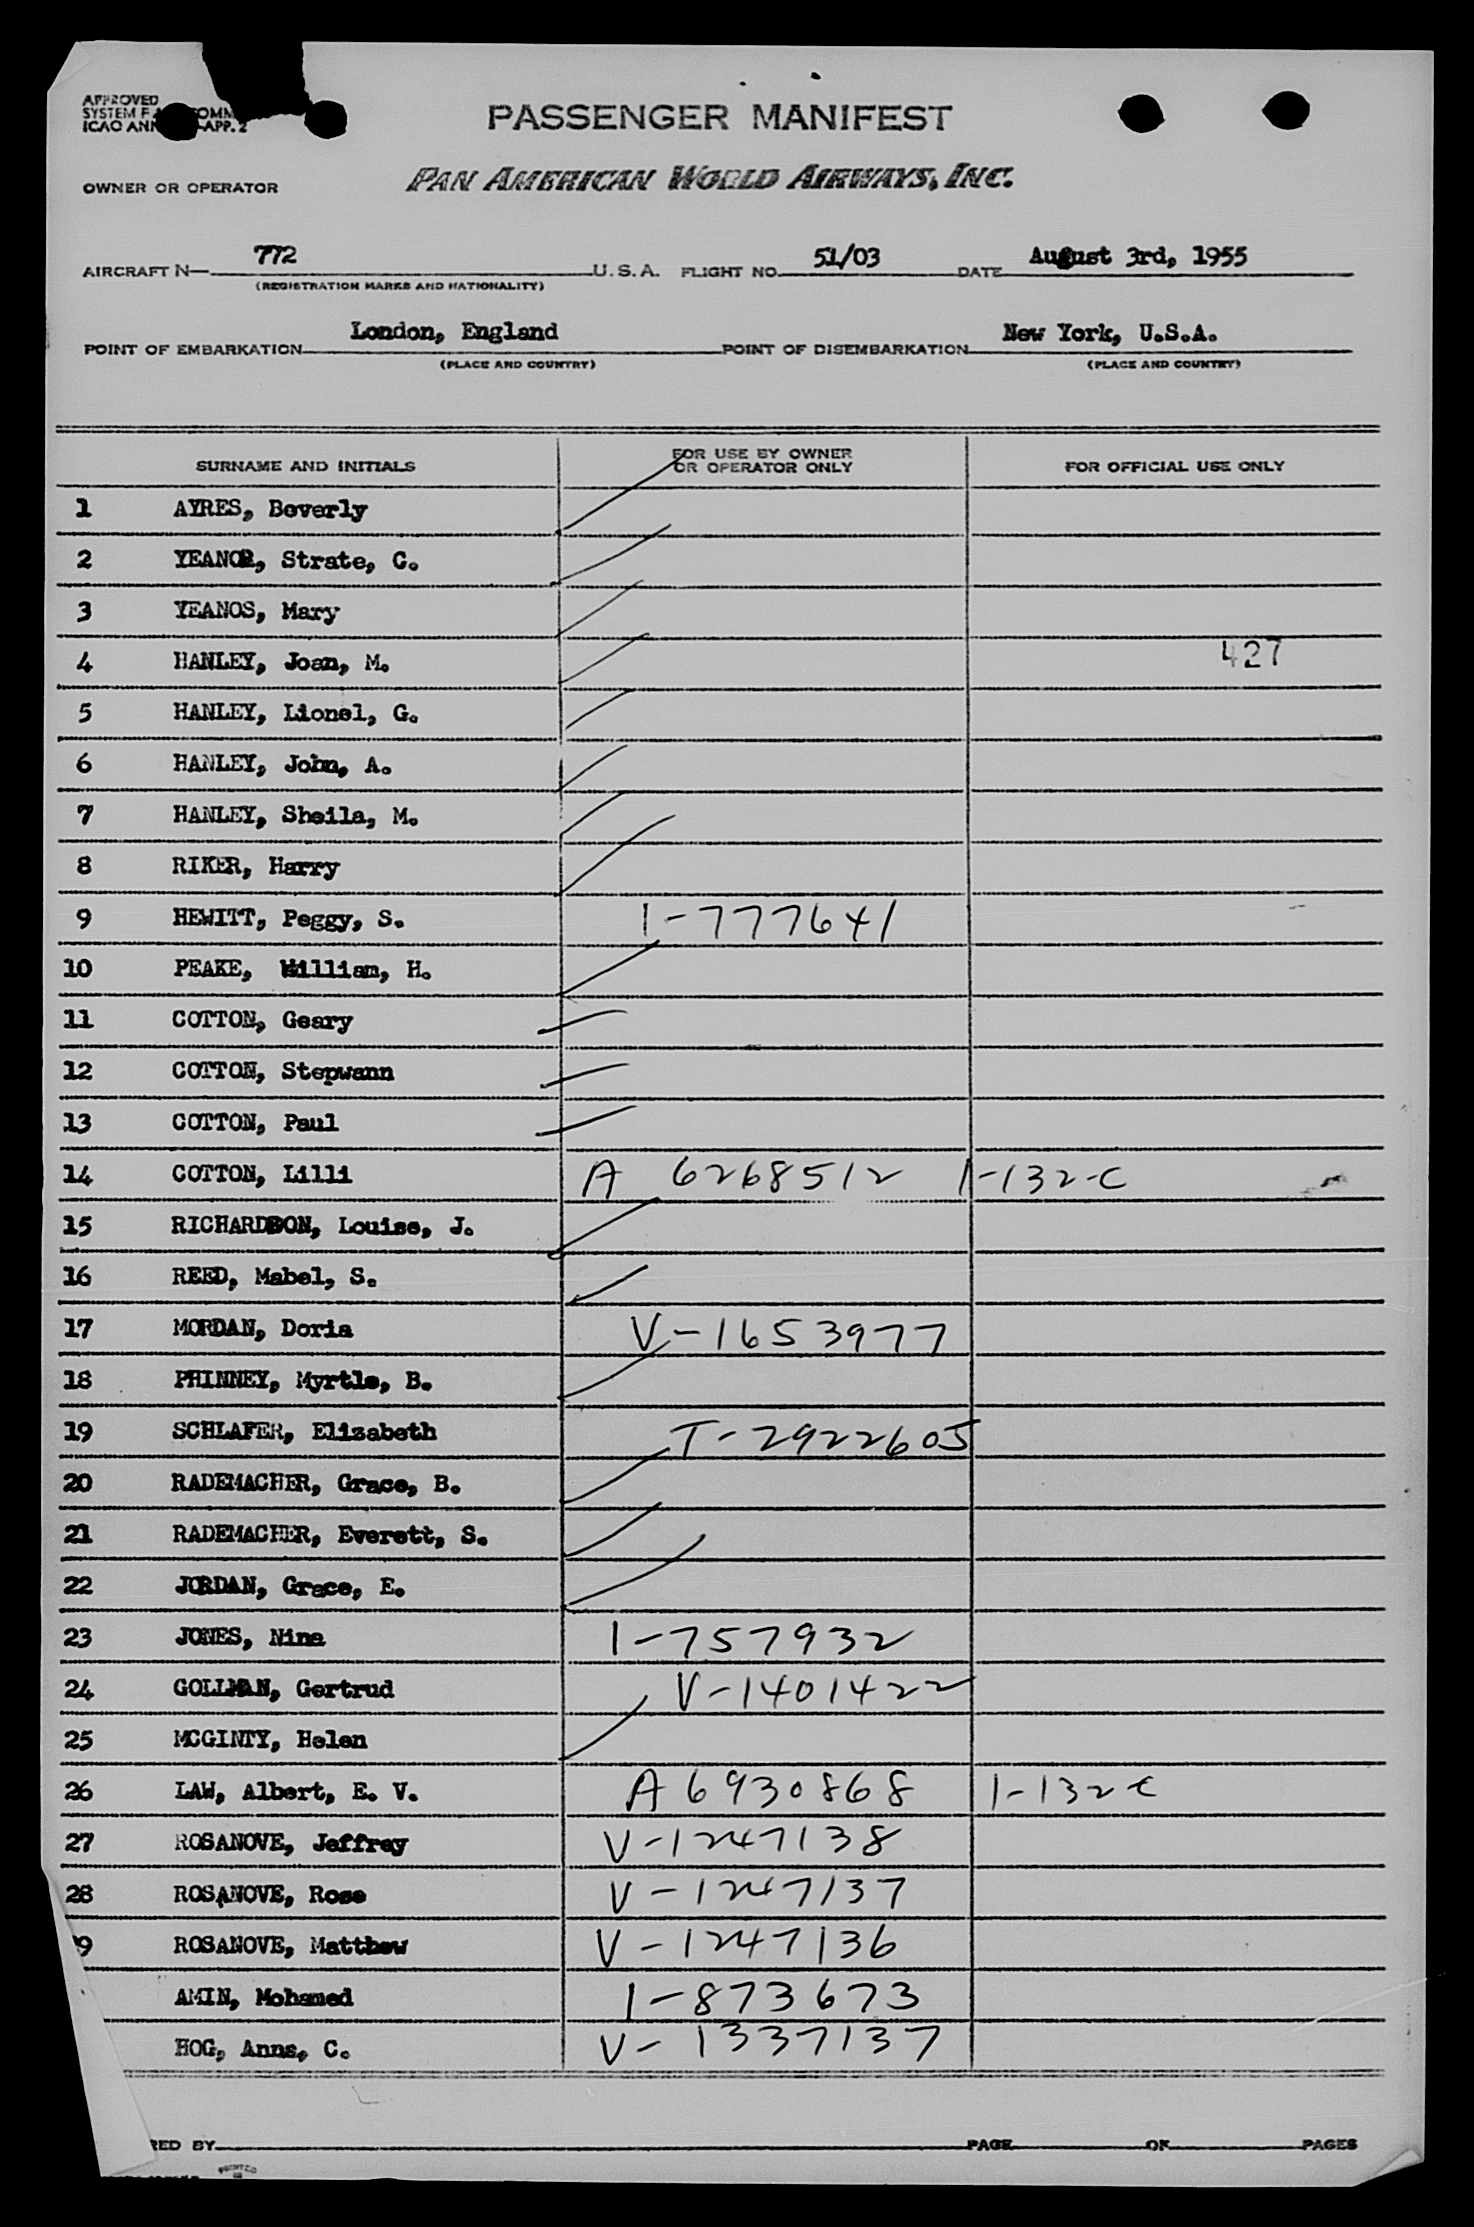 APPROVED
SYSTEM
ICAO APP. 2
PASSENGER MANIFEST
OWNER OR OPERATOR PAN AMERICAN WORLD AIRWAYS, INC.
AIRCRAFT N— 772 U.S.A. FLIGHT NO. 51/03 DATE August 3rd, 1955
(REGISTRATION MARKS AND NATIONALITY)
POINT OF EMBARKATION London, England POINT OF DISEMBARKATION New York, U.S.A.
(PLACE AND COUNTRY) (PLACE AND COUNTRY)
SURNAME AND INITIALS FOR USE BY OWNER OR OPERATOR ONLY FOR OFFICIAL USE ONLY
1 AYRES, Beverly
2 YEANOR, Strate, C.
3 YEANOS, Mary
4 HANLEY, Joan, M. 427
5 HANLEY, Lionel, G.
6 HANLEY, John, A.
7 HANLEY, Sheila, M.
8 RIKER, Harry
9 HEWITT, Peggy, S. 1-777641
10 PEAKE, William, H.
11 COTTON, Geary
12 COTTON, Stepwann
13 COTTON, Paul
14 COTTON, Lilli A 6268512 1-132-C
15 RICHARDSON, Louise, J.
16 REED, Mabel, S.
17 MORDAN, Doris V-1653977
18 PHINNEY, Myrtle, B.
19 SCHLAFER, Elizabeth T-2922605
20 RADEMACHER, Grace, B.
21 RADEMACHER, Everett, S.
22 JORDAN, Grace, E.
23 JONES, Nina 1-757932
24 GOLLMAN, Gertrud V-1401422
25 MCGINTY, Helen
26 LAW, Albert, E. V. A 6930868 1-132 C
27 ROSANOVE, Jeffrey V-1247138
28 ROSANOVE, Rose V-1247137
9 ROSANOVE, Matthew V-1247136
AMIN, Mohamed 1-873673
HOG, Anna, C. V-1337137
RED BY PAGE OF PAGES
PRINTED